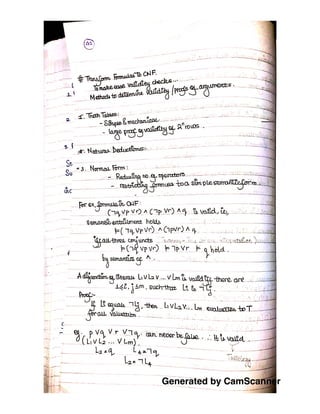 # Transform Formulas to CNF.
To make ease validity checks...
Methods to determine validity / proof of arguments.
1. Truth Tables:
- Simple & mechanical
- large proof of validity of 2ⁿ rows.
2. Natural Deductions:-
3. Normal Form:
- Reducing no. of operators
- restricting formulas to a simple semantic form.
For ex, formula in CNF:
(¬q ∨ p ∨ r) ∧ (¬p ∨ r) ∧ q is valid, i.e.,
semantic entailment holds
⊨ (¬q ∨ p ∨ r) ∧ (¬p ∨ r) ∧ q
iff all three conjuncts
⊨ (¬q ∨ p ∨ r) ⊨ ¬p ∨ r ⊨ q hold.
by semantics of ∧.
A disjunction of literals L1 ∨ L2 ∨ ... ∨ Lm is valid iff there are
1 ≤ i, j ≤ m, such that Li is ¬Lj
Proof:-
If Li equals ¬Lj, then L1 ∨ L2 ∨ ... Lm evaluates to T
for all valuation.
eg. p ∨ q ∨ r ∨ ¬q can never be false... It is valid.
(L1 ∨ L2 ... ∨ Lm).
L2 = q L4 = ¬q
L2 = ¬L4
Generated by CamScanner